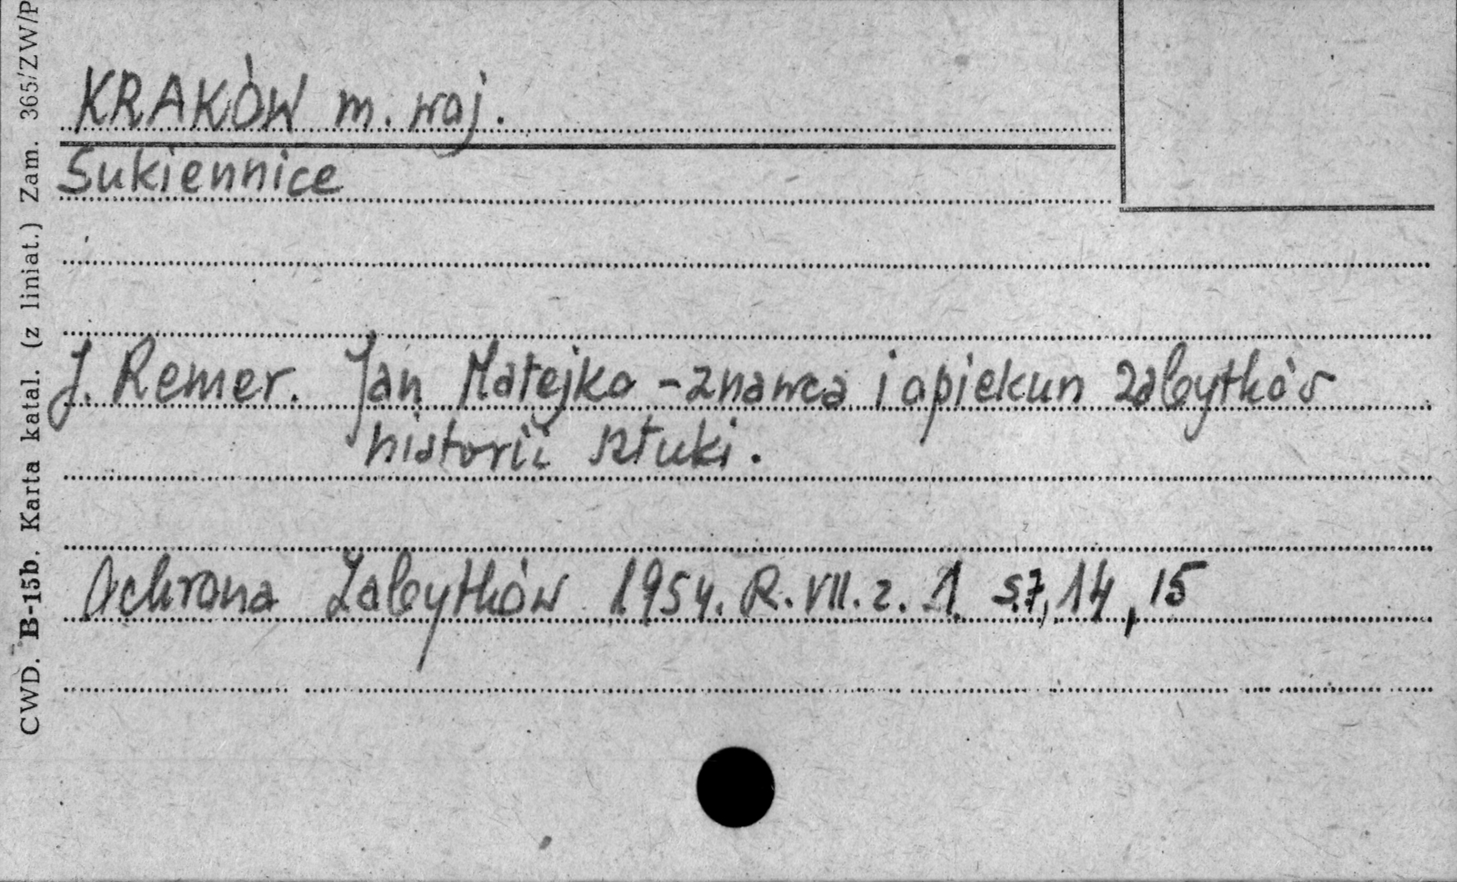 KRAKÓW m. woj.
Sukiennice
J. Remer. Jan Matejko - znawca i opiekun zabytków
historii sztuki.
Ochrona Zabytków 1954. R. VII. z. 1 s.7, 14, 15
CWD. B-15b. Karta katal. (z liniat.) Zam. 365/ZW/P